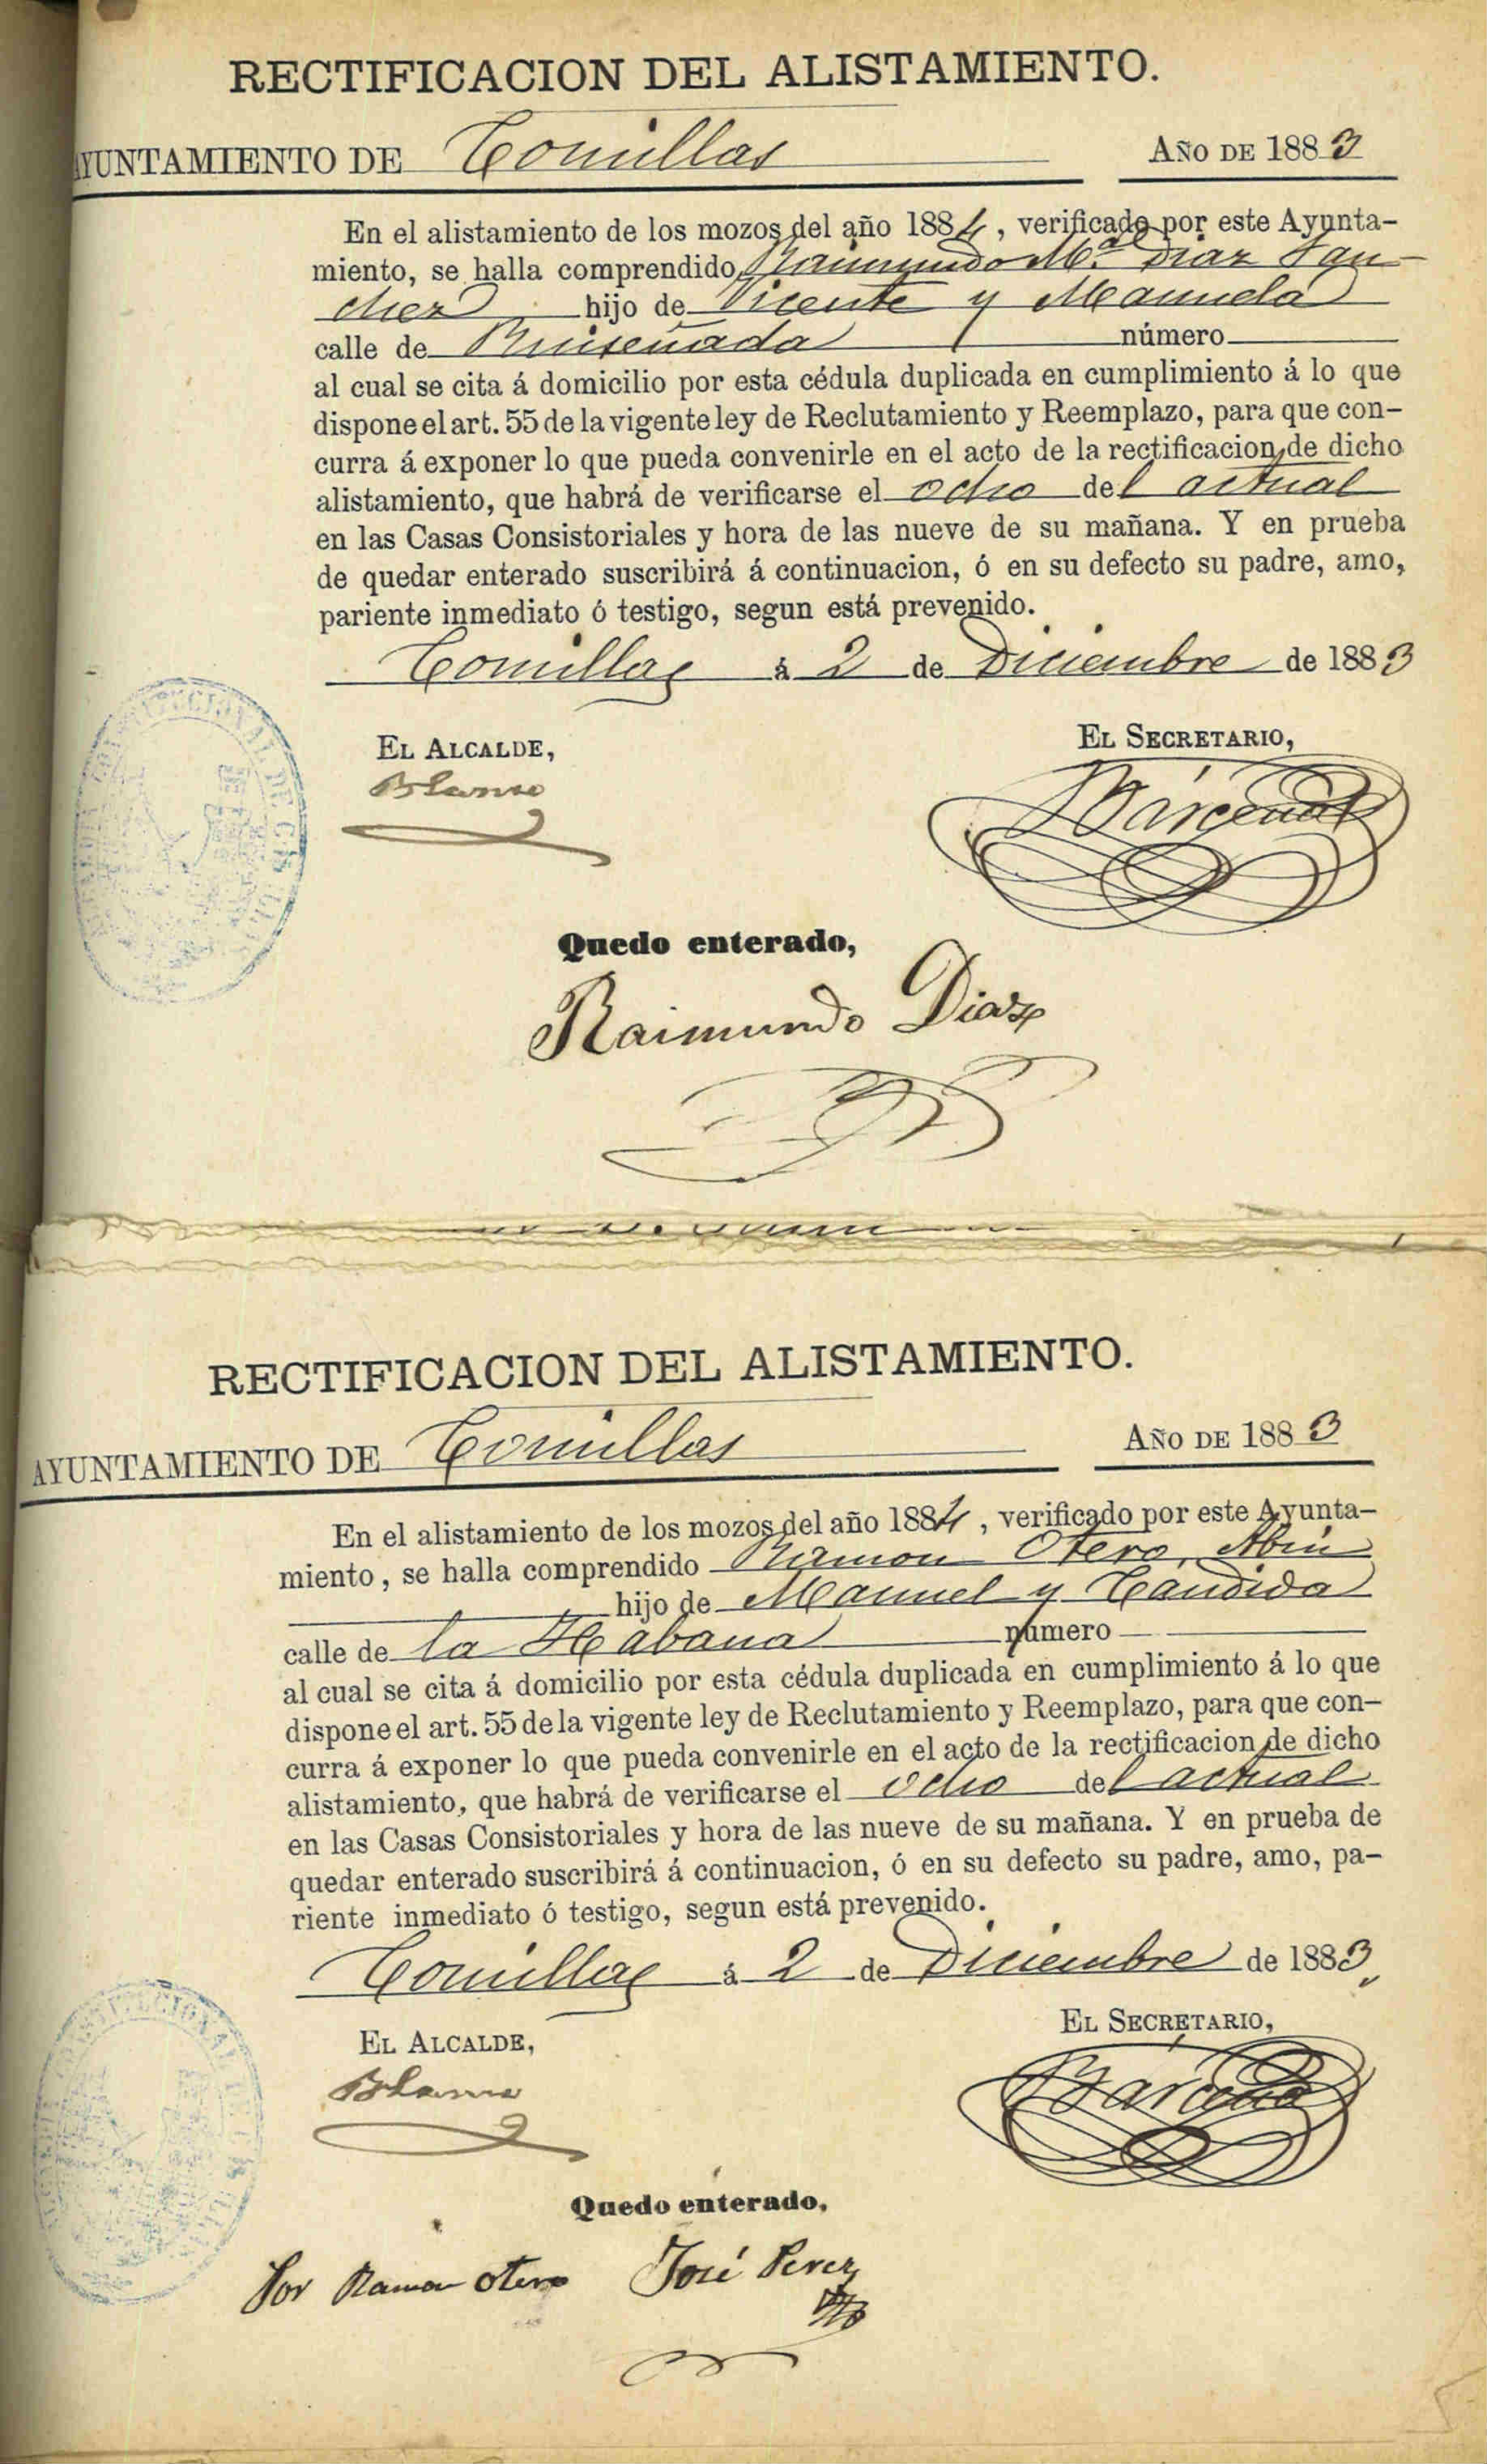 RECTIFICACION DEL ALISTAMIENTO.
AYUNTAMIENTO DE Comillas AÑO DE 1883
En el alistamiento de los mozos del año 1884, verificado por este Ayunta-
miento, se halla comprendido Raimundo Mª Diaz San-
chez hijo de Vicente y Manuela
calle de Ruiseñada número
al cual se cita á domicilio por esta cédula duplicada en cumplimiento á lo que
dispone el art. 55 de la vigente ley de Reclutamiento y Reemplazo, para que con-
curra á exponer lo que pueda convenirle en el acto de la rectificacion de dicho
alistamiento, que habrá de verificarse el ocho del actual
en las Casas Consistoriales y hora de las nueve de su mañana. Y en prueba
de quedar enterado suscribirá á continuacion, ó en su defecto su padre, amo,
pariente inmediato ó testigo, segun está prevenido.
Comillas á 2 de Diciembre de 1883
EL ALCALDE, EL SECRETARIO,
Blanco Bárcena
Quedo enterado,
Raimundo Diaz
RECTIFICACION DEL ALISTAMIENTO.
AYUNTAMIENTO DE Comillas AÑO DE 1883
En el alistamiento de los mozos del año 1884, verificado por este Ayunta-
miento, se halla comprendido Ramon Otero, Abin
hijo de Manuel y Cándida
calle de la Habana número
al cual se cita á domicilio por esta cédula duplicada en cumplimiento á lo que
dispone el art. 55 de la vigente ley de Reclutamiento y Reemplazo, para que con-
curra á exponer lo que pueda convenirle en el acto de la rectificacion de dicho
alistamiento, que habrá de verificarse el ocho del actual
en las Casas Consistoriales y hora de las nueve de su mañana. Y en prueba de
quedar enterado suscribirá á continuacion, ó en su defecto su padre, amo, pa-
riente inmediato ó testigo, segun está prevenido.
Comillas á 2 de Diciembre de 1883,
EL ALCALDE, EL SECRETARIO,
Blanco Bárcena
Quedo enterado,
Por Ramon Otero José Perez